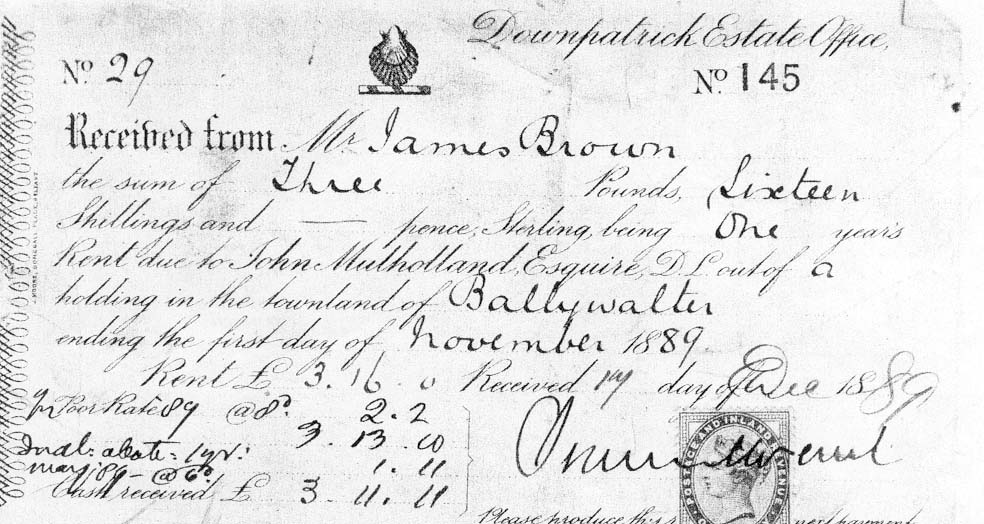 Downpatrick Estate Office,
No 29
No 145
Received from Mr James Brown
the sum of Three Pounds, Sixteen
Shillings and — pence, Sterling, being One year's
Rent due to John Mulholland, Esquire, D.L. out of a
holding in the townland of Ballywalter
ending the first day of November 1889
Rent £ 3. 16. 0 Received 17 day of Dec 1889
Poor Rate 89 @ 8d 2.2
3. 13. 10
abate: 1 yr:
@ 6d 1. 11
Cash received £ 3. 11. 11
POSTAGE AND INLAND REVENUE
Please produce this next payment